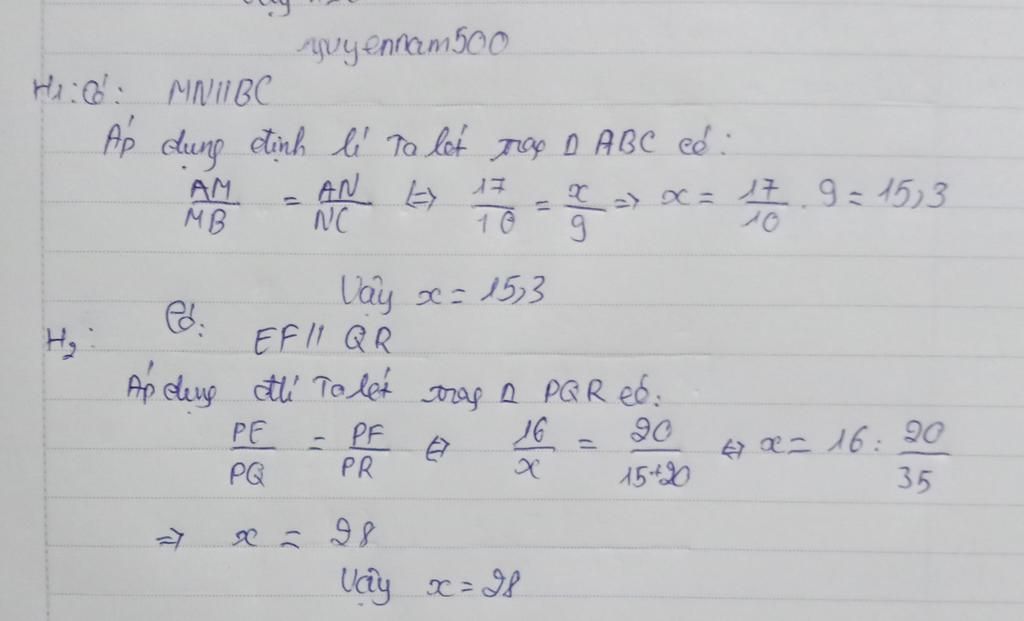 nguyennam500
H1: Có: MN//BC
Áp dụng định lí Ta lét trog Δ ABC có:
AM/MB = AN/NC ⇔ 17/10 = x/9 ⇒ x = 17/10 . 9 = 15,3
Vậy x = 15,3
H2: Có: EF // QR
Áp dụng đlí Ta lét trog Δ PQR có:
PE/PQ = PF/PR ⇔ 16/x = 20/15+20 ⇔ x = 16 : 20/35
⇒ x = 28
Vậy x = 28